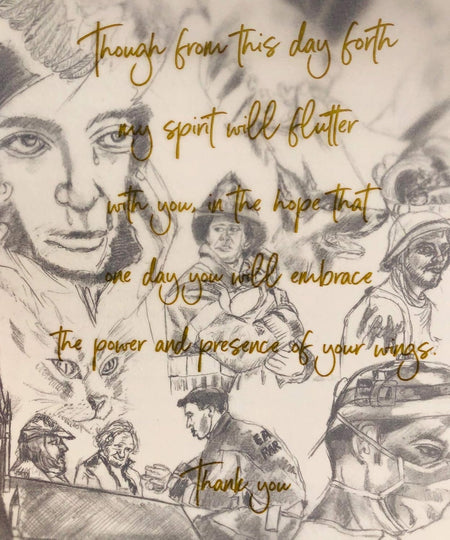 Though from this day forth
my spirit will flutter
with you, in the hope that
one day you will embrace
the power and presence of your wings.
Thank you